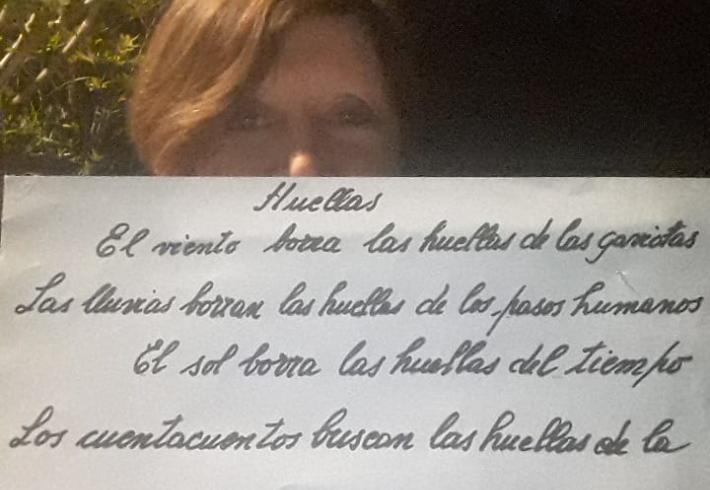 Huellas
El viento borra las huellas de las gaviotas
Las lluvias borran las huellas de los pasos humanos
El sol borra las huellas del tiempo
Los cuentacuentos buscan las huellas de la